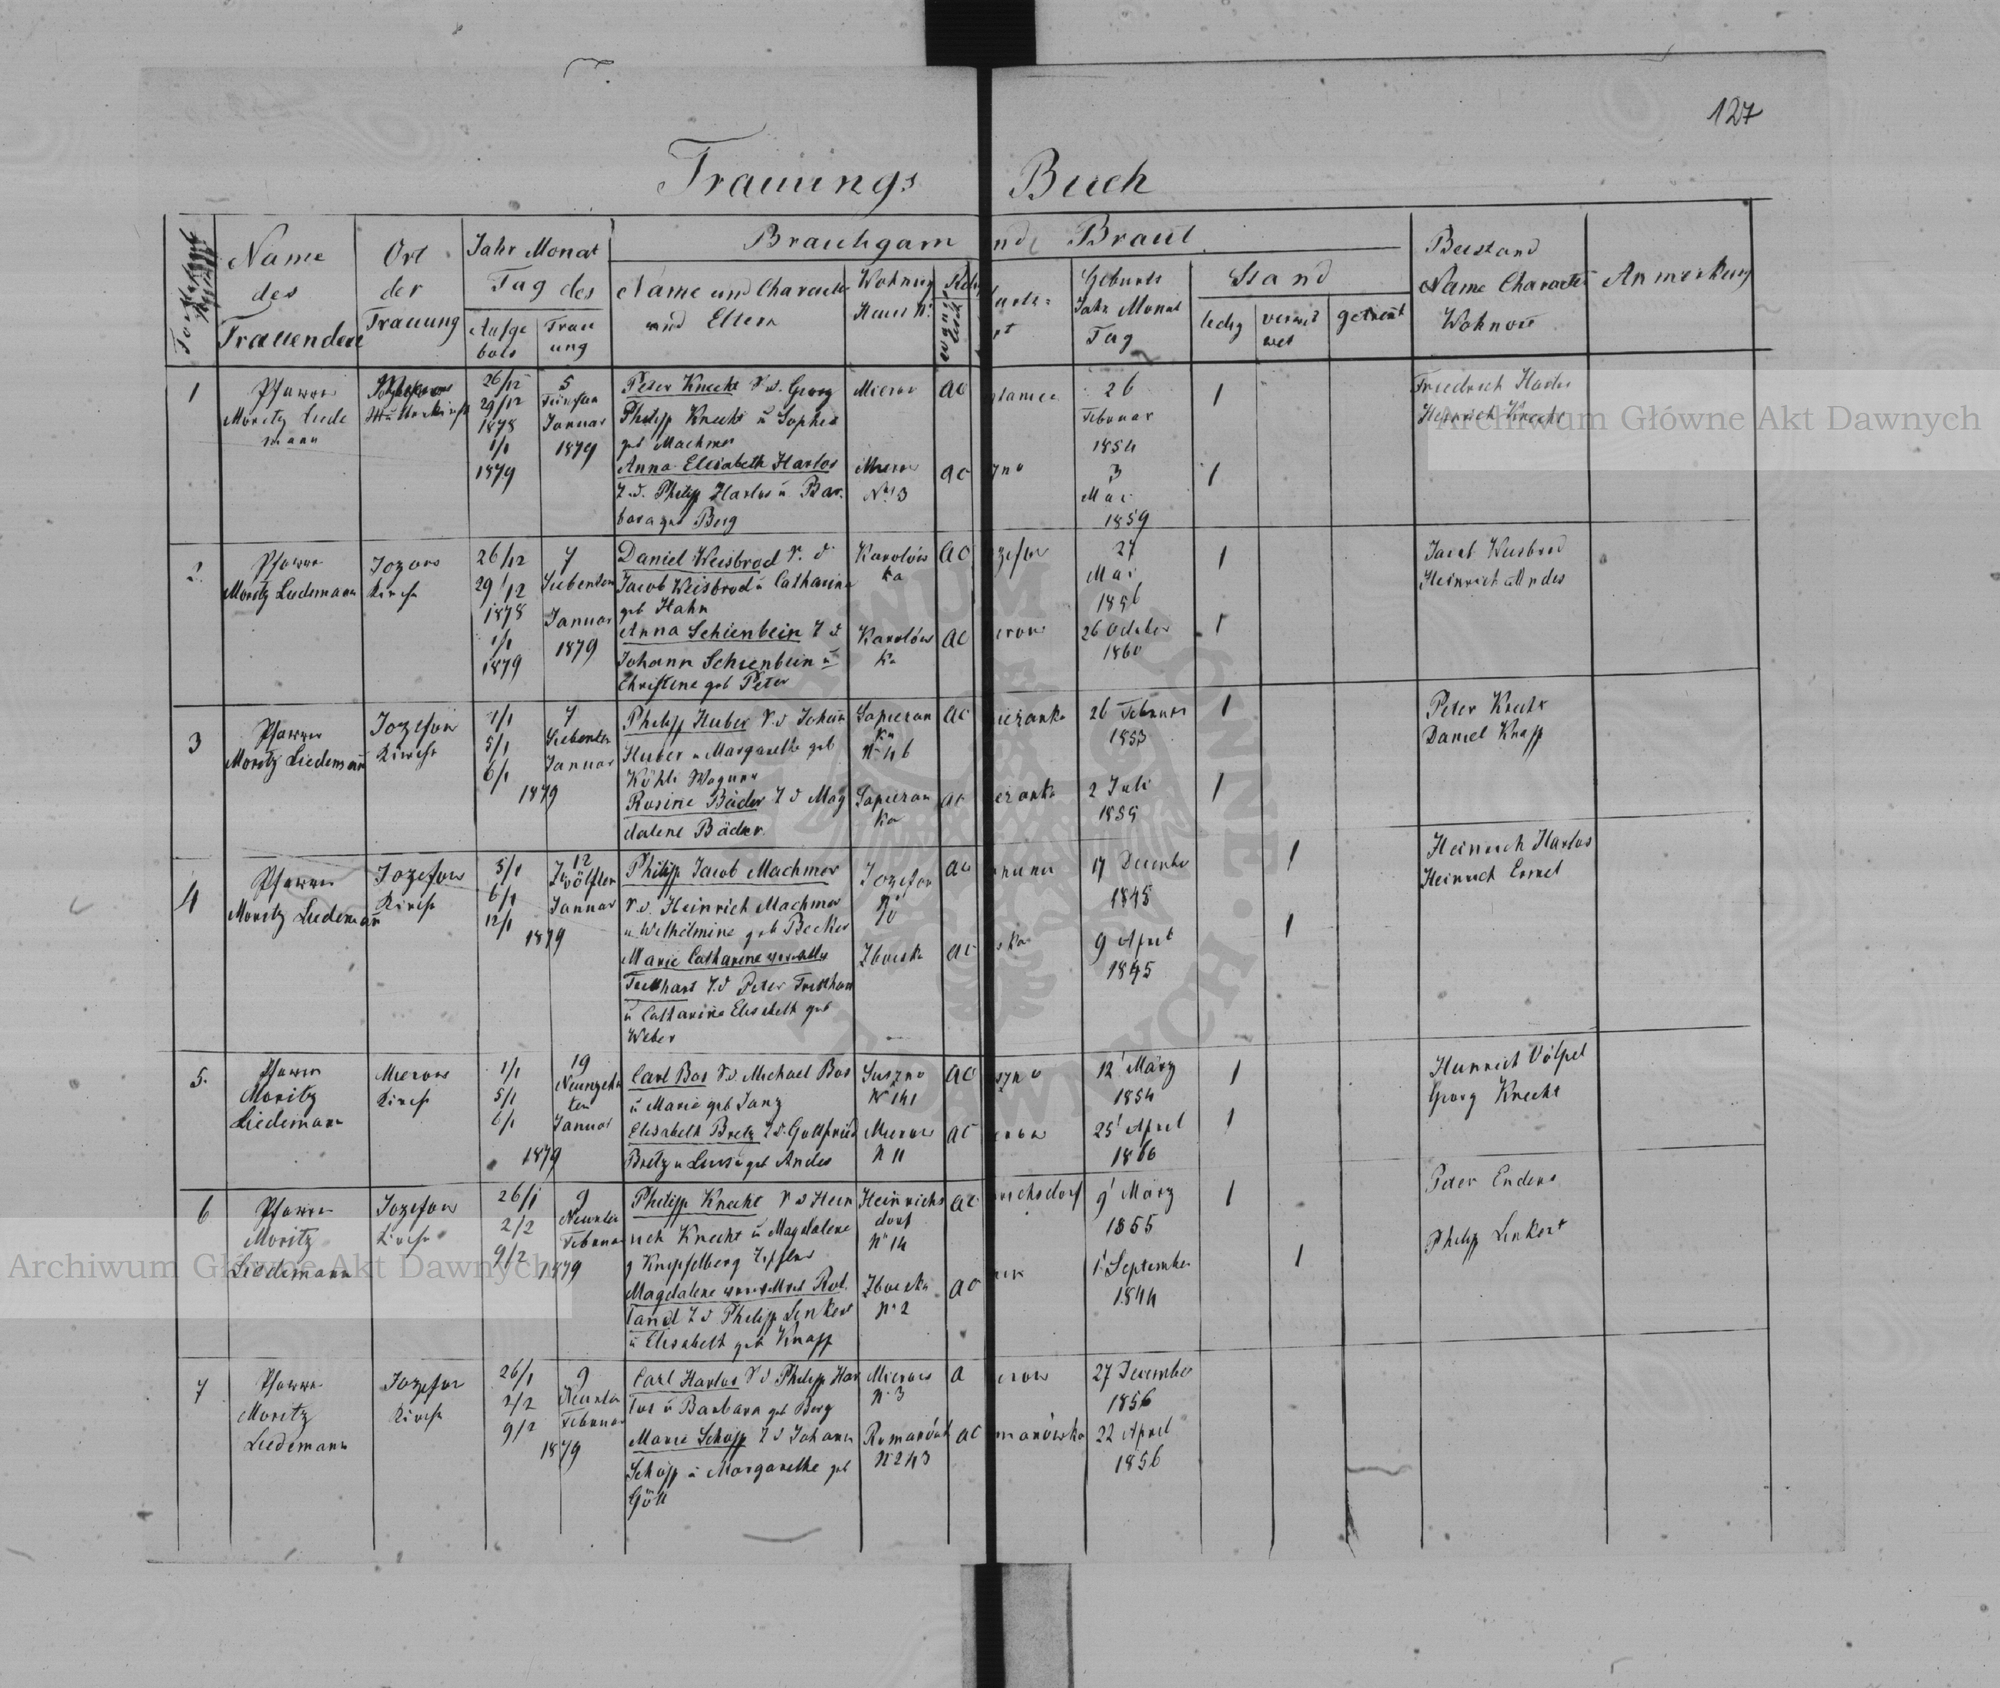 127
Trauungs Buch
Name des Trauenden
Ort der Trauung
Jahr Monat Tag des
Aufge bots
Trau ung
Bräutigam und Braut
Name und Charakter und Eltern
Wohnung Haus Nr.
Geburts Jahr Monat Tag
Stand
ledig
verwit wet
getrent
Beistand Name Character Wohnort
Anmerkung
1
Pfarrer
Moritz Liede
mann
26/12
29/12
1878
1/1
1879
5
Fünften
Januar
1879
Peter Knecht S. d. Georg
Philipp Knecht u Sophie
geb Machmer
Mierow
ac
26
Februar
1854
1
Friedrich Harlos
Heinrich Knecht
Anna Elisabeth Harlos
T. d. Philipp Harlos u Bar
bara geb Berg
Mierow
No 3
ac
3
Mai
1859
1
2
Pfarrer
Moritz Liedemann
Kirche
26/12
29/12
1878
1/1
1879
7
Siebenten
Januar
1879
Daniel Weisbrod S. d
Jacob Weisbrod u Catharina
geb Hahn
Karolów
ka
ac
27
Mai
1
Jacob Weisbrod
Heinrich Andes
Anna Schienbein T d
Johann Schienbein u
Christine geb Peter
Karolów
ka
ac
26 October
1860
1
3
Pfarrer
Moritz Liedemann
Jozefow
Kirche
1/1
5/1
6/1
7
Siebenten
Januar
1879
Philipp Huber S. d Johann
Huber u Margarethe geb
Köhli Wagner
Sapiezan
ka
No 46
ac
iezanka
26 Februar
1853
1
Peter Knecht
Daniel Knapp
Rosine Bäder T d Mag
dalene Bäder
Sapiezan
ka
ac
ezanka
2 Juli
1859
1
4
Pfarrer
Moritz Liedemann
Jozefow
Kirche
5/1
6/1
12/1
12
Zwölften
Januar
1879
Philipp Jacob Machmer
S. d. Heinrich Machmer
u Wilhelmine geb Becker
Jozefow
ac
17 December
1845
1
Heinrich Harlos
Heinrich Ernst
Marie Catharine verwittw
T. d Peter
u Catharina Elisabeth geb
Weber
Zboiska
ac
ska
9 April
1845
1
5.
Pfarrer
Moritz
Liedemann
Mierow
Kirche
1/1
5/1
6/1
19
Neunzehn
ten
Januar
1879
Carl Bos S. d. Michael Bos
u Marie geb Janz
Suszno
No 141
ac
szno
12 März
1854
1
Heinrich Völpel
Georg Knecht
Elisabeth Bretz T. d. Gottfried
Bretz u Luise geb Andes
Mierow
N 11
ac
25 April
1860
1
6
Pfarrer
Moritz
Liedemann
Jozefow
Kirche
26/1
2/2
9/2
9
Neunten
Februar
1879
Philipp Knecht S d Hein
rich Knecht u Magdalene
g Knipfelberg
Heinrichs
dorf
No 14
ac
richsdorf
9 März
1855
1
Peter Enders
Philipp Linkert
Magdalene verwittwet Rol
land T d Philipp Linkert
u Elisabeth geb Knapp
Zboiska
No 2
ac
1 September
1844
1
7
Pfarrer
Moritz
Liedemann
Jozefow
Kirche
26/1
2/2
9/2
9
Neunten
Februar
1879
Carl Harlos S d Philipp Har
los u Barbara geb Berg
Mierow
No 3
a
erow
27 December
1856
Marie Schapp T d Johann
Schapp u Margarethe geb
Göll
Romanówk
No 243
ac
manówka
22 April
1856
Archiwum Główne Akt Dawnych
Archiwum Główne Akt Dawnych